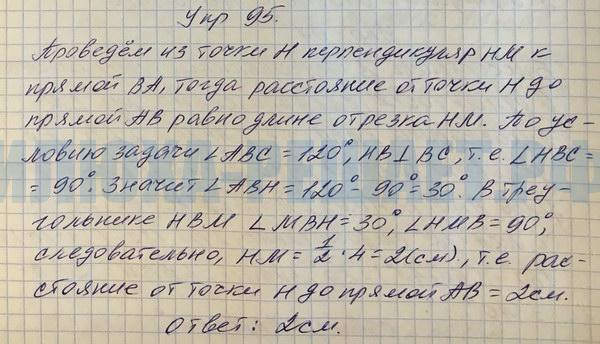 Упр 95.
Проведём из точки H перпендикуляр HM к
прямой BA, тогда расстояние от точки H до
прямой AB равно длине отрезка HM. По ус-
ловию задачи ∠ABC = 120°, HB⊥BC, т.е. ∠HBC =
= 90°. Значит ∠ABH = 120° - 90° = 30°. В треу-
гольнике HBM ∠MBH = 30°, ∠HMB = 90°,
следовательно, HM = 1/2 · 4 = 2(см)., т.е. рас-
стояние от точки H до прямой AB = 2см.
Ответ: 2см.